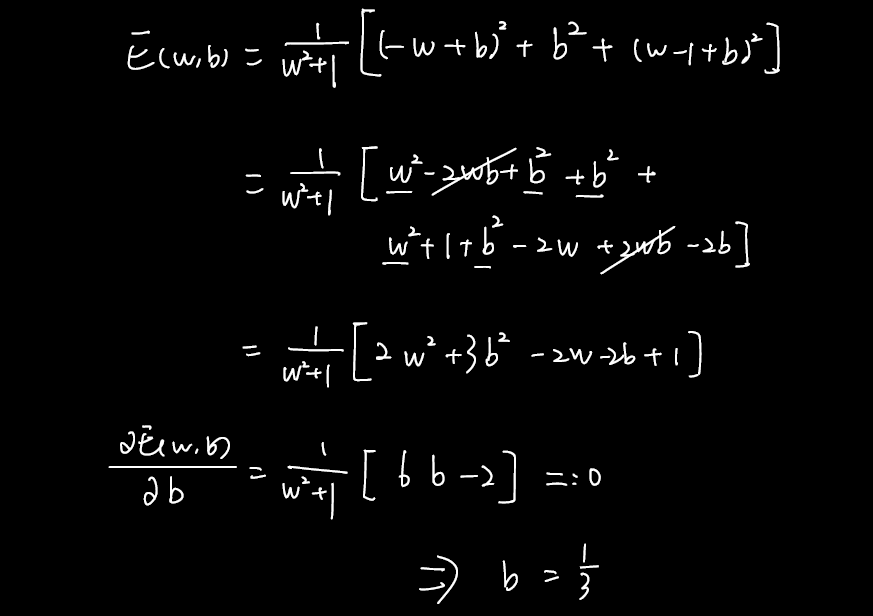 Ē(w,b) = 1/(w²+1) [(-w+b)² + b² + (w-1+b)²]
= 1/(w²+1) [w² -2wb + b² + b² +
w² + 1 + b² - 2w + 2wb - 2b]
= 1/(w²+1) [2w² + 3b² - 2w - 2b + 1]
∂Ē(w,b)/∂b = 1/(w²+1) [6b - 2] =: 0
⇒ b = 1/3